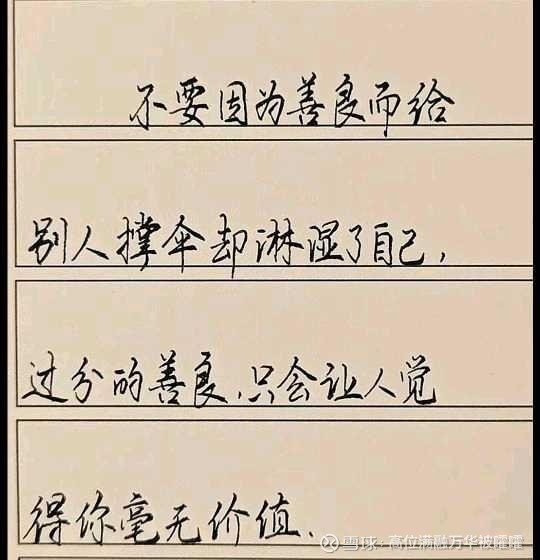 不要因为善良而给
别人撑伞却淋湿了自己，
过分的善良，只会让人觉
得你毫无价值、
雪球：高位满融万华被嚯嚯